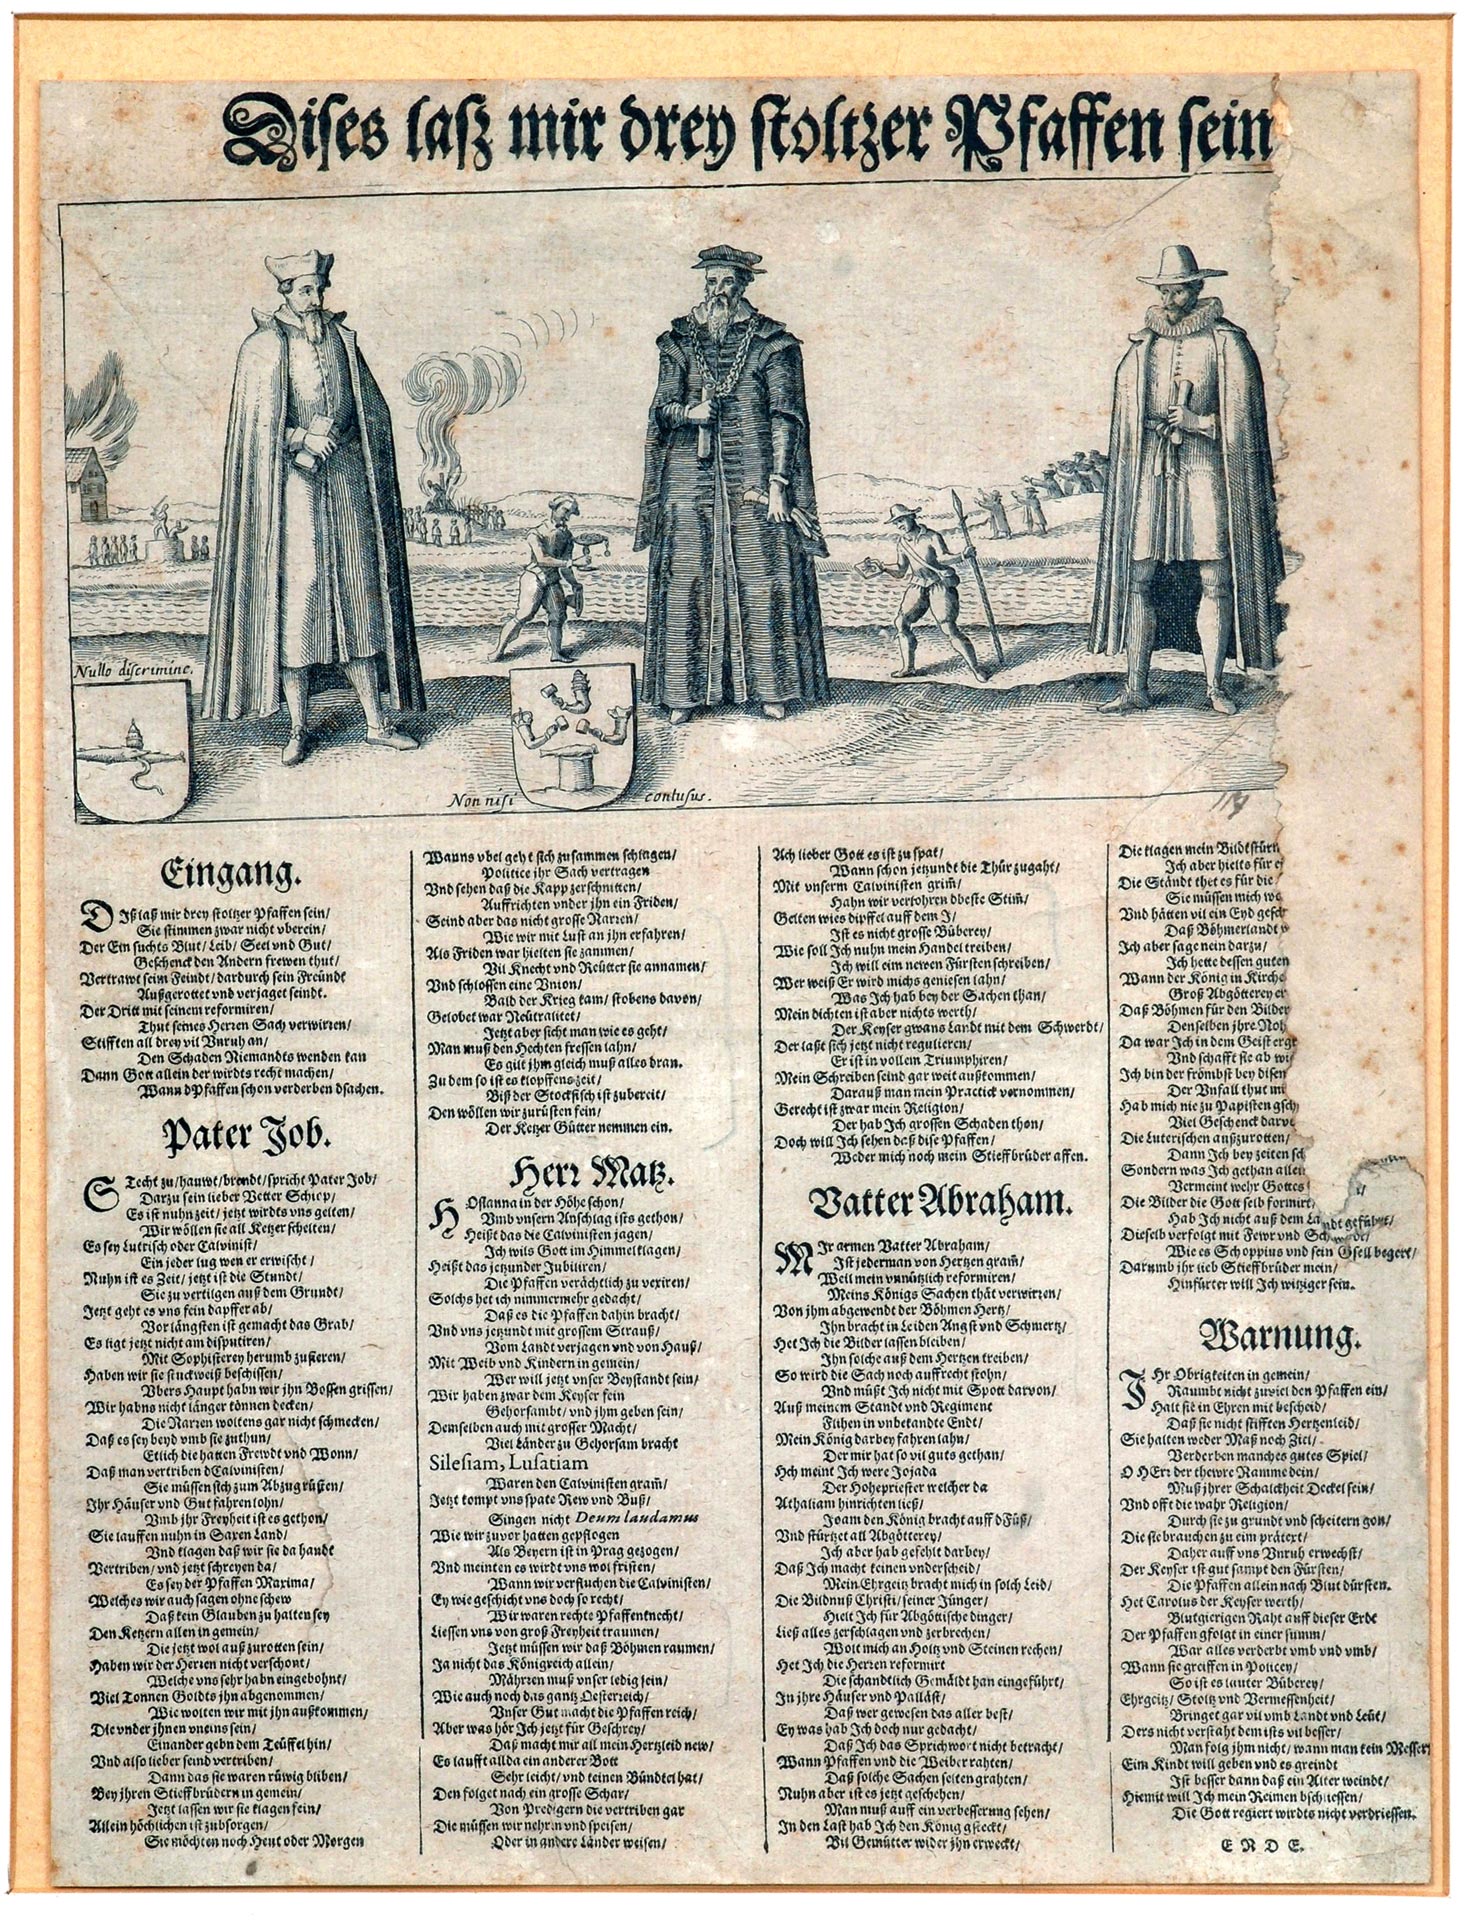 Dises lasz mir drey stoltzer Pfaffen sein
Nullo discrimine.
Non nisi contusus.
119
Eingang.
DIß laß mir drey stoltzer Pfaffen sein/
Sie stimmen zwar nicht vberein/
Der Ein suchts Blut/ Leib/ Seel vnd Gut/
Geschenck den Andern frewen thut/
Vertrawt seim Feindt/ dardurch sein Freündt
Außgerottet vnd verjaget seindt.
Der Dritt mit seinem reformiren/
Thut seines Herren Sach verwirren/
Stifften all drey vil Vnruh an/
Den Schaden Niemandts wenden kan
Dann Gott allein der wirdts recht machen/
Wann dPfaffen schon verderben dsachen.
Pater Job.
STecht zu/ hauwt/ brendt/ spricht Pater Job/
Darzu sein lieber Vetter Schiop/
Es ist nuhn zeit/ jetzt wirdts vns gelten/
Wir wöllen sie all Ketzer schelten/
Es sey Lutrisch oder Calvinist/
Ein jeder lug wen er erwischt/
Nuhn ist es Zeit/ jetzt ist die Stundt/
Sie zu vertilgen auß dem Grundt/
Jetzt geht es vns fein dapffer ab/
Vor längsten ist gemacht das Grab/
Es ligt jetzt nicht an disputiren/
Mit Sophisterey herumb zufieren/
Haben wir sie stuckweiß beschissen/
Vbers Haupt habn wir jhn Bossen grissen/
Wir habns nicht länger können decken/
Die Narren woltens gar nicht schmecken/
Daß es sey beyd vmb sie zuthun/
Etlich die hatten Frewdt vnd Wonn/
Daß man vertriben dCalvinisten/
Sie müssen sich zum Abzug rüsten/
Jhr Häuser vnd Gut fahren lohn/
Vmb jhr Freyheit ist es gethon/
Sie lauffen nuhn in Saxen Land/
Vnd klagen daß wir sie da haudt
Vertriben/ vnd jetzt schreyen da/
Es sey der Pfaffen Maxima/
Welches wir auch sagen ohne schew
Daß kein Glauben zu halten sey
Den Ketzern allen in gemein/
Die jetzt wol auß zurotten sein/
Haben wir der Herren nicht verschont/
Welche vns sehr habn eingebohnt/
Viel Tonnen Goldts jhn abgenommen/
Wie wolten wir mit jhn außkommen/
Die vnder jhnen vneins sein/
Einander gebn dem Teüffel hin/
Vnd also lieber seind vertriben/
Dann das sie waren rüwig bliben/
Bey jhren Stieffbrüdern in gemein/
Jetzt lassen wir sie klagen fein/
Allein höchlichen ist zubsorgen/
Sie möchten noch Heut oder Morgen
Wanns vbel geht sich zusammen schlagen/
Politice jhr Sach vertragen
Vnd sehen daß die Kapp zerschnitten/
Auffrichten vnder jhn ein Friden/
Seind aber das nicht grosse Narren/
Wie wir mit Lust an jhn erfahren/
Als Friden war hielten sie zammen/
Vil Knecht vnd Reütter sie annamen/
Vnd schlossen eine Vnion/
Bald der Krieg kam/ stobens davon/
Gelobet war Neütralitet/
Jetzt aber sicht man wie es geht/
Man muß den Hechten fressen lahn/
Es gilt jhm gleich muß alles dran.
Zu dem so ist es klopffens zeit/
Biß der Stockfisch ist zubereit/
Den wöllen wir zurüsten fein/
Der Ketzer Gütter nemmen ein.
Herr Matz.
HOsianna in der Höhe schon/
Vmb vnsern Anschlag ists gethon/
Heißt das die Calvinisten jagen/
Jch wils Gott im Himmel klagen/
Heißt das jetzunder Jubiliren/
Die Pfaffen verächtlich zu vexiren/
Solchs het ich nimmermehr gedacht/
Daß es die Pfaffen dahin bracht/
Vnd vns jetzundt mit grossem Strauß/
Vom Landt verjagen vnd von Hauß/
Mit Weib vnd Kindern in gemein/
Wer will jetzt vnser Beystandt sein/
Wir haben zwar dem Keyser fein
Gehorsambt/ vnd jhm geben sein/
Demselben auch mit grosser Macht/
Viel Länder zu Gehorsam bracht
Silesiam, Lusatiam
Waren den Calvinisten gram/
Jetzt kompt vns spate Rew vnd Buß/
Singen nicht Deum laudamus
Wie wir zuvor hatten gepflogen
Als Beyern ist in Prag gezogen/
Vnd meinten es wirdt vns wol fristen/
Wann wir verfluchen die Calvinisten/
Ey wie geschicht vns doch so recht/
Wir waren rechte Pfaffenknecht/
Liessen vns von groß Freyheit traumen/
Jetzt müssen wir daß Böhmen raumen/
Ja nicht das Königreich allein/
Mährren muß vnser ledig sein/
Wie auch noch das gantz Oesterreich/
Vnser Gut macht die Pfaffen reich/
Aber was hör Jch jetzt für Geschrey/
Daß macht mir all mein Hertzleid new/
Es laufft allda ein anderer Bott
Sehr leicht/ vnd keinen Bündtel hat/
Den folget nach ein grosse Schar/
Von Predigern die vertriben gar
Die müssen wir nehrn vnd speisen/
Oder in andere Länder weisen/
Ach lieber Gott es ist zu spat/
Wann schon jetzundt die Thür zugaht/
Mit vnserm Calvinisten grim̄/
Hahn wir verlohren dbeste Stim̄/
Gelten wies dipffel auff dem J/
Ist es nicht grosse Büberey/
Wie soll Jch nuhn mein Handel treiben/
Jch will eim newen Fürsten schreiben/
Wer weiß Er wird michs geniesen lahn/
Was Jch hab bey der Sachen than/
Mein dichten ist aber nichts werth/
Der Keyser gwans Landt mit dem Schwerdt/
Der laßt sich jetzt nicht regulieren/
Er ist in vollem Triumphiren/
Mein Schreiben seind gar weit außkommen/
Darauß man mein Practick vernommen/
Gerecht ist zwar mein Religion/
Der hab Jch grossen Schaden thon/
Doch will Jch sehen daß dise Pfaffen/
Weder mich noch mein Stieffbrüder affen.
Vatter Abraham.
MIr armen Vatter Abraham/
Ist jederman von Hertzen gram̄/
Weil mein vnnützlich reformiren/
Meins Königs Sachen thät verwirren/
Von jhm abgewendt der Böhmen Hertz/
Ihn bracht in Leiden Angst vnd Schmertz/
Het Jch die Bilder lassen bleiben/
Ihn solche auß dem Hertzen treiben/
So wird die Sach noch auffrecht stohn/
Vnd müßt Jch nicht mit Spott darvon/
Auß meinem Standt vnd Regiment
Flihen in vnbekandte Endt/
Mein König darbey fahren lahn/
Der mir hat so vil guts gethan/
Hch meint Jch were Jojada
Der Hohepriester welcher da
Athaliam hinrichten ließ/
Joam den König bracht auff dFüß/
Vnd stürtzet all Abgötterey/
Jch aber hab gefehlt darbey/
Daß Jch macht keinen vnderscheid/
Mein Ehrgeitz bracht mich in solch Leid/
Die Bildnuß Christi/ seiner Jünger/
Hielt Jch für Abgöttische dinger/
Ließ alles zerschlagen vnd zerbrechen/
Wolt mich an Holtz vnd Steinen rechen/
Het Jch die Herren reformirt
Die schandtlich Gemäldt han eingeführt/
In jhre Häuser vnd Palläst/
Daß wer gewesen das aller best/
Ey was hab Jch doch nur gedacht/
Daß Jch das Sprichwort nicht betracht/
Wann Pfaffen vnd die Weiber rahten/
Daß solche Sachen selten grahten/
Nuhn aber ist es jetzt geschehen/
Man muß auff ein verbesserung sehen/
In den Last hab Jch den König gsteckt/
Vil Gemütter wider jhn erweckt/
Die klagen mein Bildstürm
Jch aber hielts für
Die Ständt thet es für die
Sie müssen mich
Vnd hätten vil ein Eyd
Daß Böhmerlandt
Jch aber sage nein darzu/
Jch hette dessen guten
Wann der König in Kirche
Groß Abgötterey
Daß Böhmen für den Bilder
Denselben jhre
Da war Jch in dem Geist
Vnd schafft sie ab
Jch bin der frömbst bey disen
Der Vnfall thut
Hab mich nie zu Papisten
Viel Geschenck
Die Luterischen außzurotten/
Dann Jch bey zeiten
Sondern was Jch gethan allein
Vermeint wehr Gottes
Die Bilder die Gott selb formirt/
Hab Jch nicht auß dem Landt geführt/
Dieselb verfolgt mit Fewr vnd
Wie es Schoppius vnd sein Gsell begert/
Darumb jhr lieb Stieffbrüder mein/
Hinfürter will Jch witziger sein.
Warnung.
IHr Obrigkeiten in gemein/
Raumbt nicht zuviel den Pfaffen ein/
Halt sie in Ehren mit bescheid/
Daß sie nicht stifften Hertzenleid/
Sie halten weder Maß noch Ziel/
Verderben manches gutes Spiel/
O HErr der thewre Namme dein/
Muß jhrer Schalckheit Deckel sein/
Vnd offt die wahr Religion/
Durch sie zu grundt vnd scheitern gon/
Die sie brauchen zu eim prätext/
Daher auff vns Vnruh erwechst/
Der Keyser ist gut sampt den Fürsten/
Die Pfaffen allein nach Blut dürsten.
Het Carolus der Keyser werth/
Blutgierigen Raht auff dieser Erde
Der Pfaffen gfolgt in einer summ/
War alles verderbt vmb vnd vmb/
Wann sie greiffen in Policey/
So ist es lauter Büberey/
Ehrgeitz/ Stoltz vnd Vermessenheit/
Bringet gar vil vmb Landt vnd Leüt/
Ders nicht verstaht dem ists vil besser/
Man folg jhm nicht/ wann man kein Messer
Eim Kindt will geben vnd es greindt
Ist besser dann daß ein Alter weindt/
Hiemit will Jch mein Reimen bschliessen/
Die Gott regiert wirdts nicht verdriessen.
E N D E.